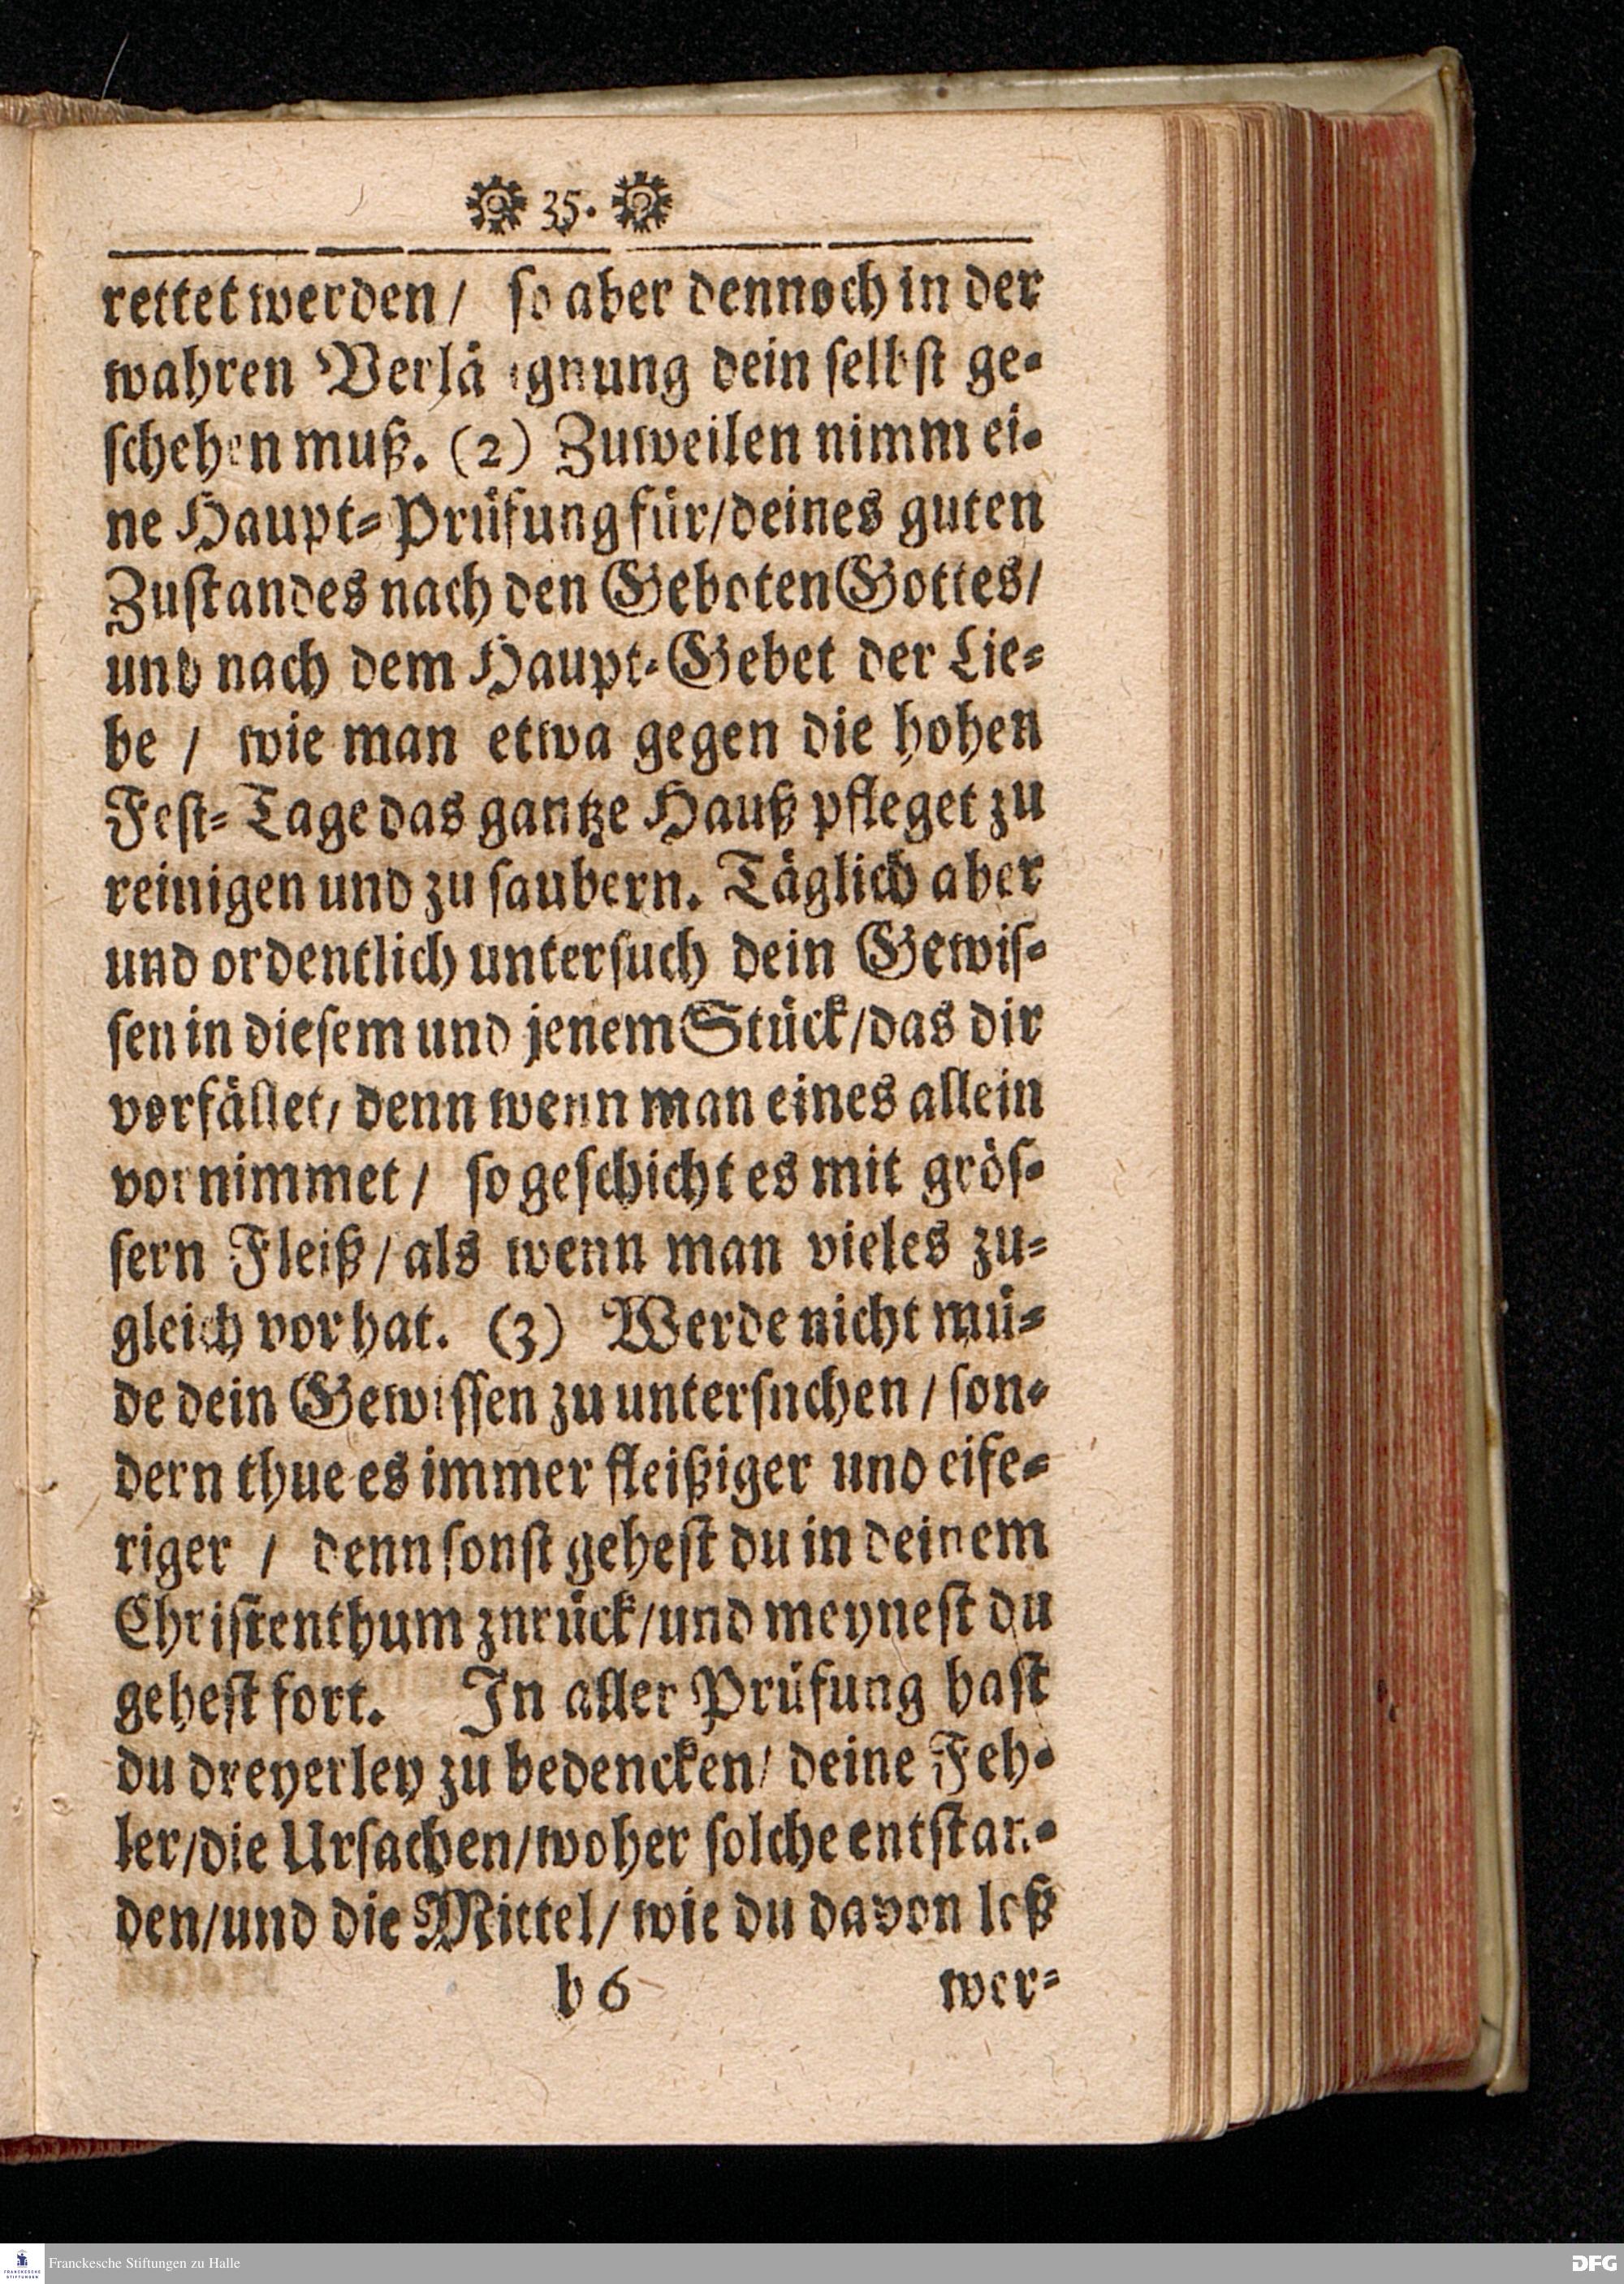 35.
rettet werden/ so aber dennoch in der
wahren Verläugnung dein selbst ge-
schehen muß. (2) Zuweilen nimm ei-
ne Haupt-Prüfung für/deines guten
Zustandes nach den Geboten Gottes/
und nach dem Haupt-Gebet der Lie-
be / wie man etwa gegen die hohen
Fest-Tage das gantze Hauß pfleget zu
reinigen und zu saubern. Täglich aber
und ordentlich untersuch dein Gewis-
sen in diesem und jenem Stück/das dir
vorfället/ denn wenn man eines allein
vornimmet / so geschicht es mit grös-
sern Fleiß/als wenn man vieles zu-
gleich vor hat. (3) Werde nicht mü-
de dein Gewissen zu untersnchen/son-
dern thue es immer fleißiger und eife-
riger / denn sonst gehest du in deinem
Christenthum znrück/und meynest du
gehest fort. In aller Prüfung hast
du dreyerley zu bedencken/ deine Feh-
ler/die Ursachen/woher solche entstan-
den/und die Mittel/ wie du davon loß
b 6 wer-
Franckesche Stiftungen zu Halle
FRANCKESCHE STIFTUNGEN
DFG